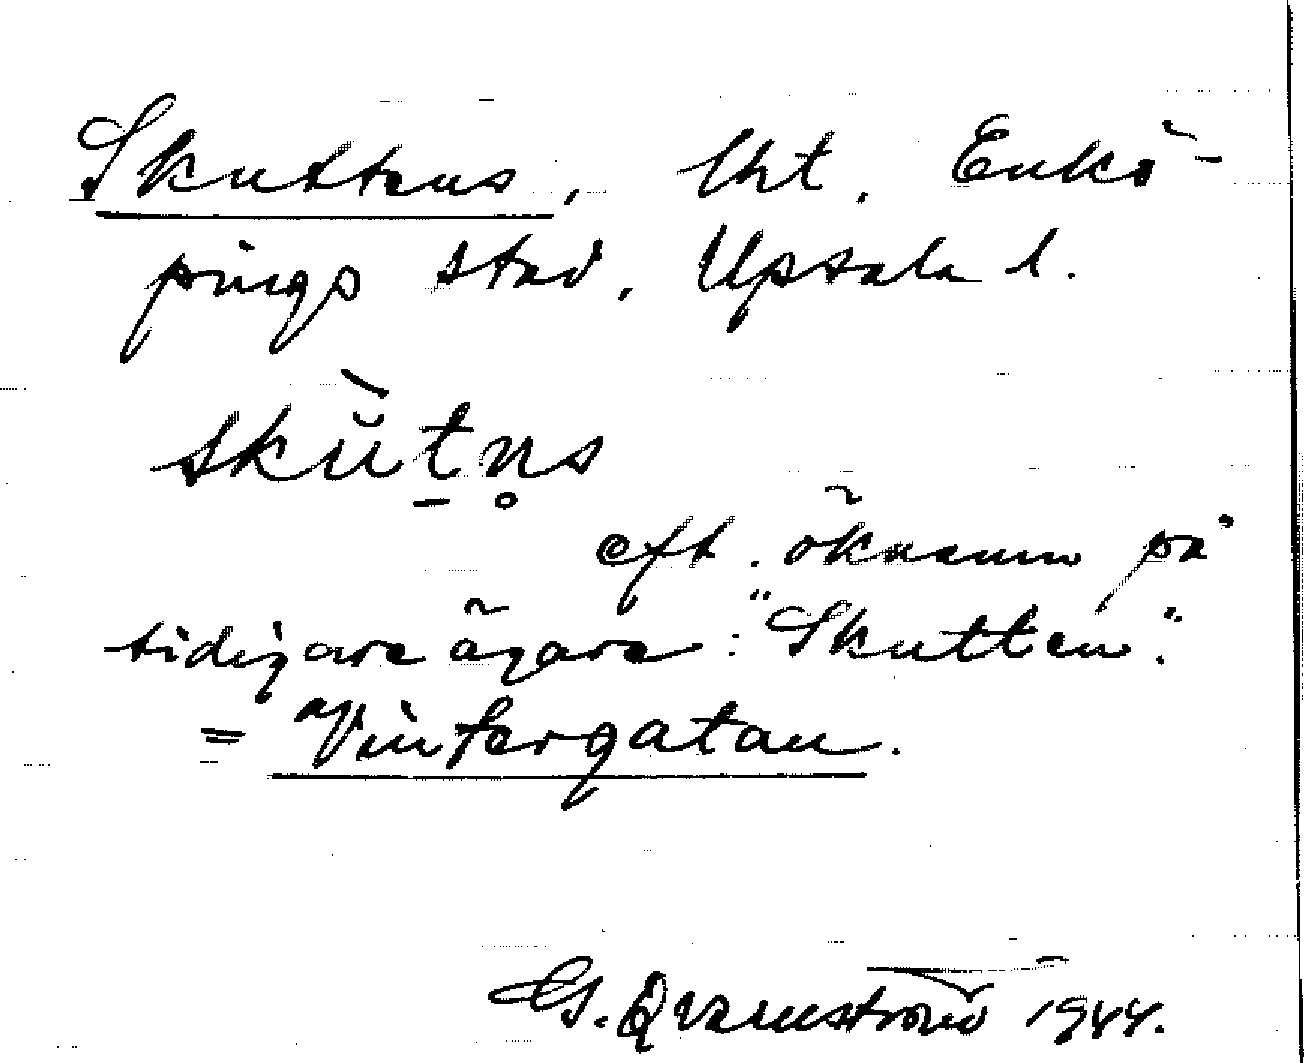 Skuttens, lht. Enkö-
pings stad, Upsala l.
skŭ̀ṯn̥s
eft. öknamn på
tidigare ägare: "Skutten".
= Vintergatan.
G. Qvarnström 1944.